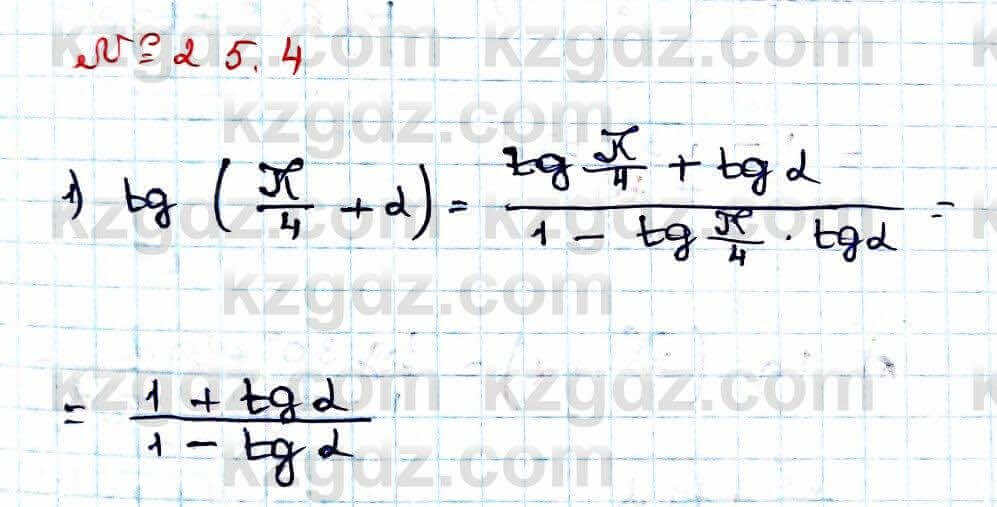 № 25.4
1) tg (π/4 + α) = (tg π/4 + tg α)/(1 - tg π/4 · tg α) =
= (1 + tg α)/(1 - tg α)
kzgdz.com kzgdz.com
kzgdz.com
kzgdz.com kzgdz.com
kzgdz.com
kzgdz.com kzgdz.com
kzgdz.com